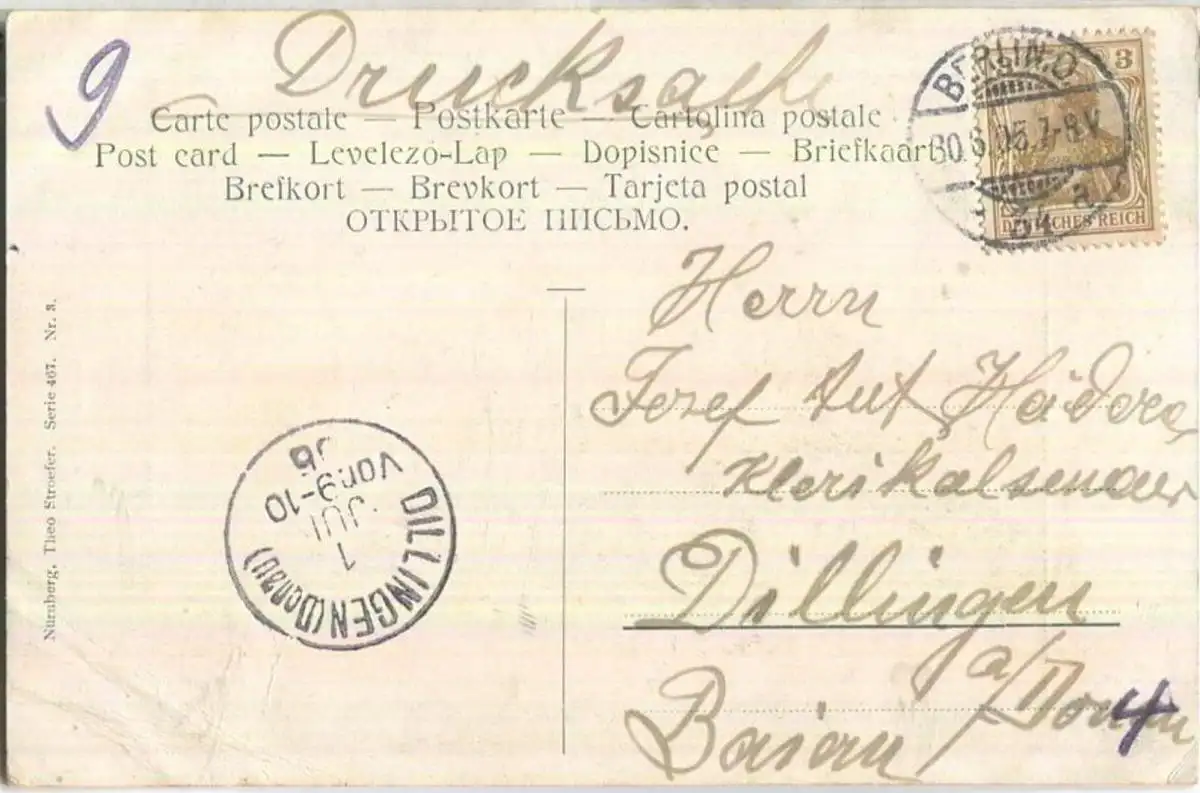 9
Drucksache
Carte postale — Postkarte — Cartolina postale
Post card — Levelezö-Lap — Dopisnice — Briefkaart.
Brefkort — Brevkort — Tarjeta postal
ОТКРЫТОЕ ПИСЬМО.
BERLIN.O.
30.6.05.7-8V.
3
DEUTSCHES REICH
Herrn
Josef Ant
Klerikalseminar
Dillingen
a/Donau
Baiern
4
DILLINGEN (Donau)
1
JUL
Vor. 9-10
Nürnberg, Theo Stroefer. Serie 467. Nr. 3.